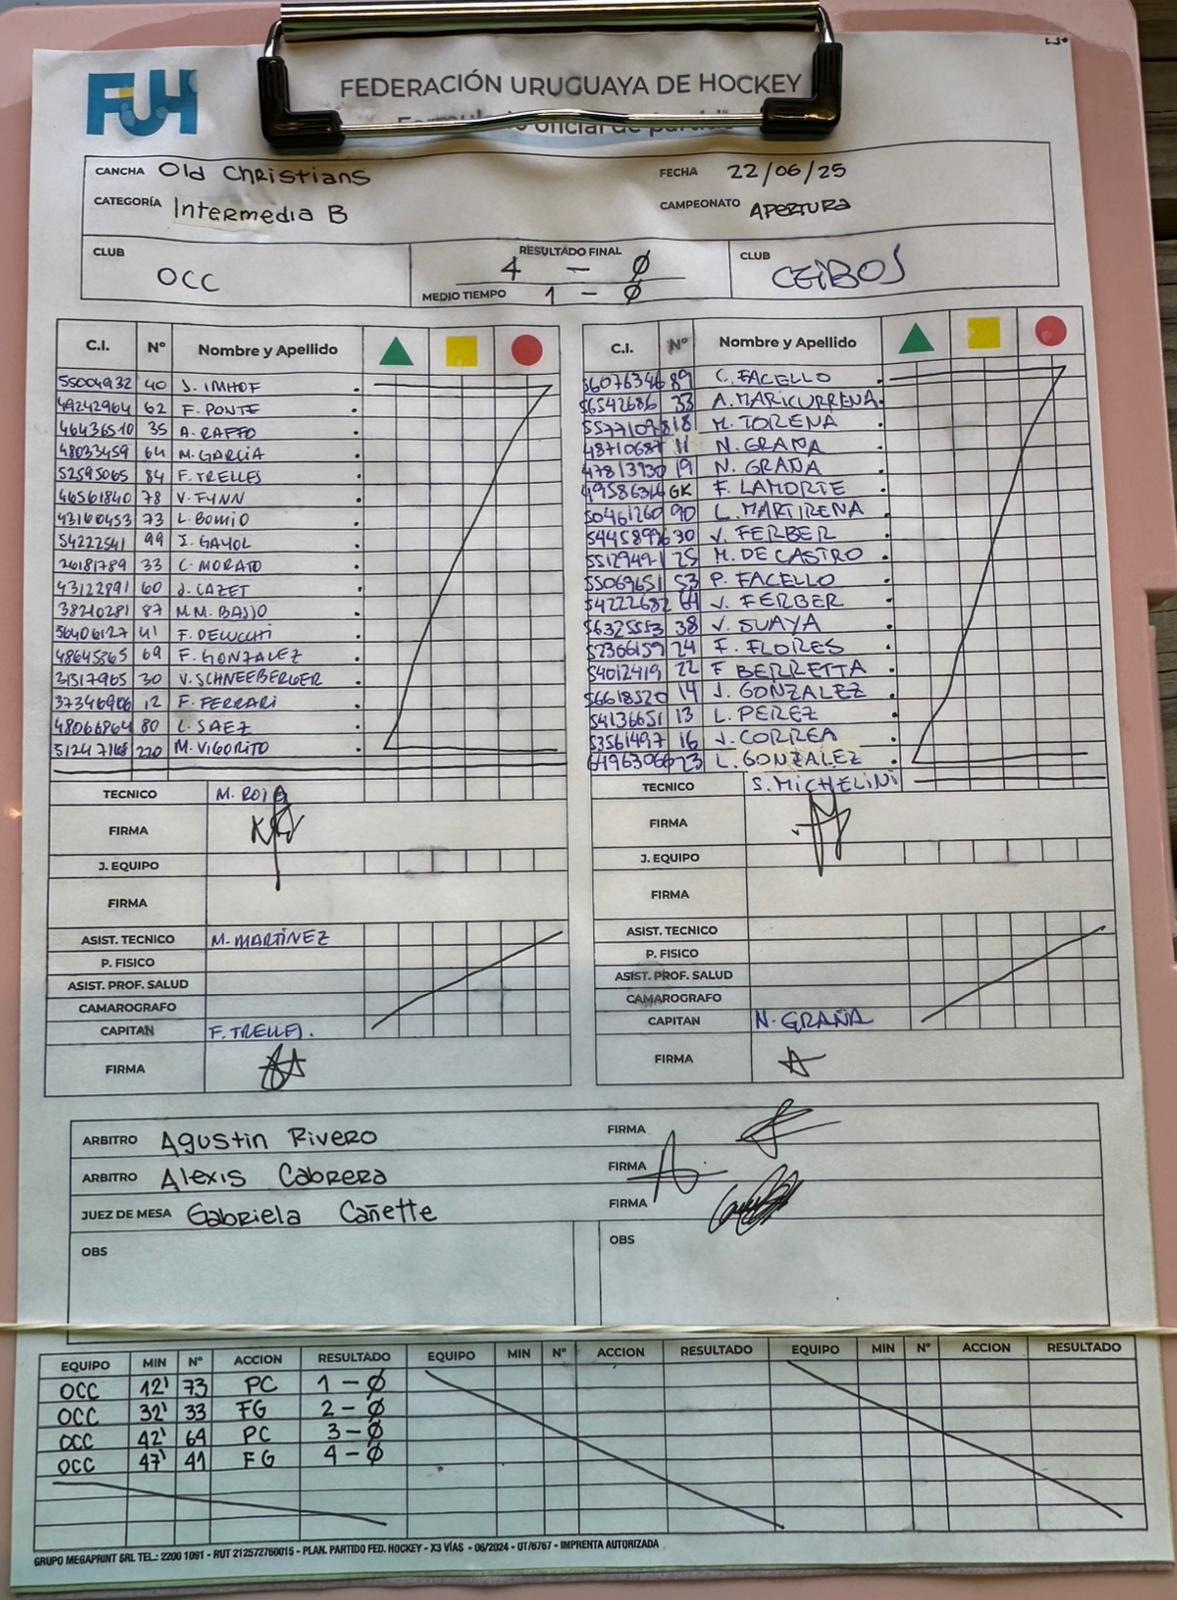 FUH
FEDERACIÓN URUGUAYA DE HOCKEY
CANCHA Old Christians FECHA 22/06/25
CATEGORÍA Intermedia B CAMPEONATO APERTURA
CLUB OCC RESULTADO FINAL 4 - Ø CLUB CEIBOS
MEDIO TIEMPO 1 - Ø
C.I. Nº Nombre y Apellido
55004932 40 J. IMHOF
49242964 62 F. PONTE
46436510 35 A. RAFFO
48033459 64 M. GARCIA
52595065 84 F. TRELLES
46561840 78 V. FYNN
43160453 73 L. BOMIO
54222541 99 J. GAYOL
26181789 33 C. MORATO
43122891 60 J. CAZET
38210281 87 M.M. BASSO
56406127 41 F. DELUCCHI
48645365 69 F. GONZALEZ
31517965 30 V. SCHNEEBERGER
37346906 12 F. FERRARI
48066864 80 L. SAEZ
51247168 220 M. VIGORITO
TECNICO M. ROJA
FIRMA
J. EQUIPO
FIRMA
ASIST. TECNICO M. MARTÍNEZ
P. FISICO
ASIST. PROF. SALUD
CAMAROGRAFO
CAPITAN F. TRELLES.
FIRMA
C.I. Nº Nombre y Apellido
56076346 89 C. FACELLO
56542686 33 A. MARICURRENA
55771098 818 M. TORENA
48710687 11 N. GRAÑA
47813930 19 N. GRAÑA
49586316 GK F. LAMORTE
50461260 90 L. MARTIRENA
54458996 30 V. FERBER
55129491 25 M. DE CASTRO
55069651 53 P. FACELLO
54222682 64 V. FERBER
56325553 38 V. SUAYA
52366159 24 F. FLORES
54012419 22 F BERRETTA
56618520 14 J. GONZALEZ
54136651 13 L. PEREZ
53561497 16 J. CORREA
64963066 23 L. GONZALEZ
TECNICO S. MICHELINI
FIRMA
J. EQUIPO
FIRMA
ASIST. TECNICO
P. FISICO
ASIST. PROF. SALUD
CAMAROGRAFO
CAPITAN N. GRAÑA
FIRMA
ARBITRO Agustin Rivero FIRMA
ARBITRO Alexis Cabrera FIRMA
JUEZ DE MESA Gabriela Cañette FIRMA
OBS OBS
EQUIPO MIN Nº ACCION RESULTADO EQUIPO MIN Nº ACCION RESULTADO EQUIPO MIN Nº ACCION RESULTADO
OCC 12' 73 PC 1 - Ø
OCC 32' 33 FG 2 - Ø
OCC 42' 69 PC 3 - Ø
OCC 47' 41 FG 4 - Ø
GRUPO MEGAPRINT SRL TEL.: 2200 1091 - RUT 212572760015 - PLAN. PARTIDO FED. HOCKEY - X3 VÍAS - 06/2024 - OT/6767 - IMPRENTA AUTORIZADA